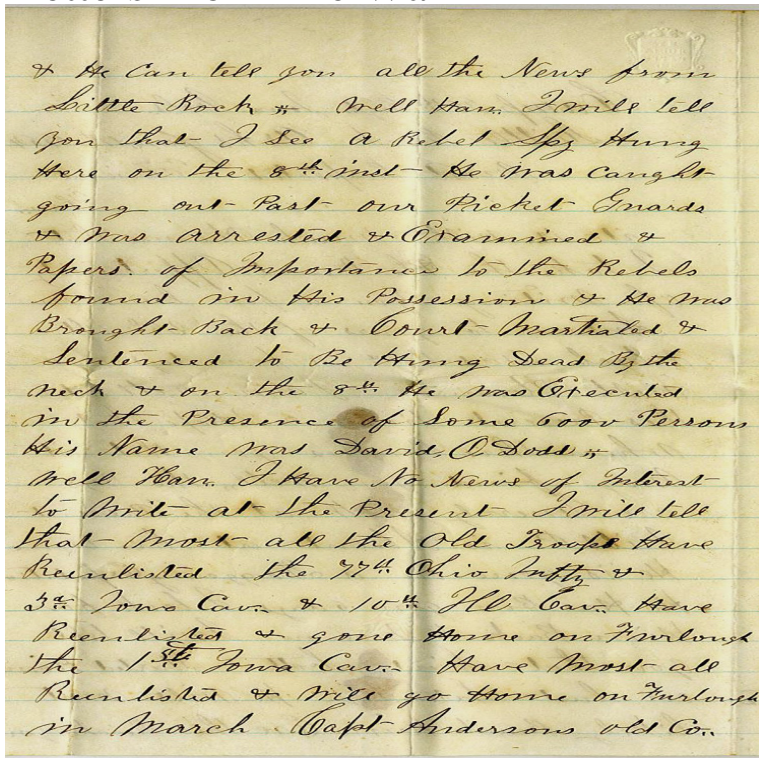 & He Can tell you all the News from
Little Rock " Well Han. I will tell
you that I See A Rebel Spy Hung
Here on the 8th inst He was Caught
going out Past our Picket Guards
& was Arrested & Examined &
Papers. of Importance to the Rebels
found in His Possession & He was
Brought Back & Court Martialed &
Sentenced to Be Hung Dead By the
neck & on the 8th He was Executed
in the Presence of Some 6000 Persons
His Name was David, O. Dodd "
Well Han. I Have No News of Interest
to Write at the Present I will tell
that Most all the Old Troops Have
Reenlisted the 77th Ohio Infty &
3d Iowa Cav. & 10th Ill Cav. Have
Reenlisted & gone Home on Furlough
the 1st Iowa Cav. Have Most all
Reenlisted & Will go Home on Furlough
in March. Capt Andersons old Co..